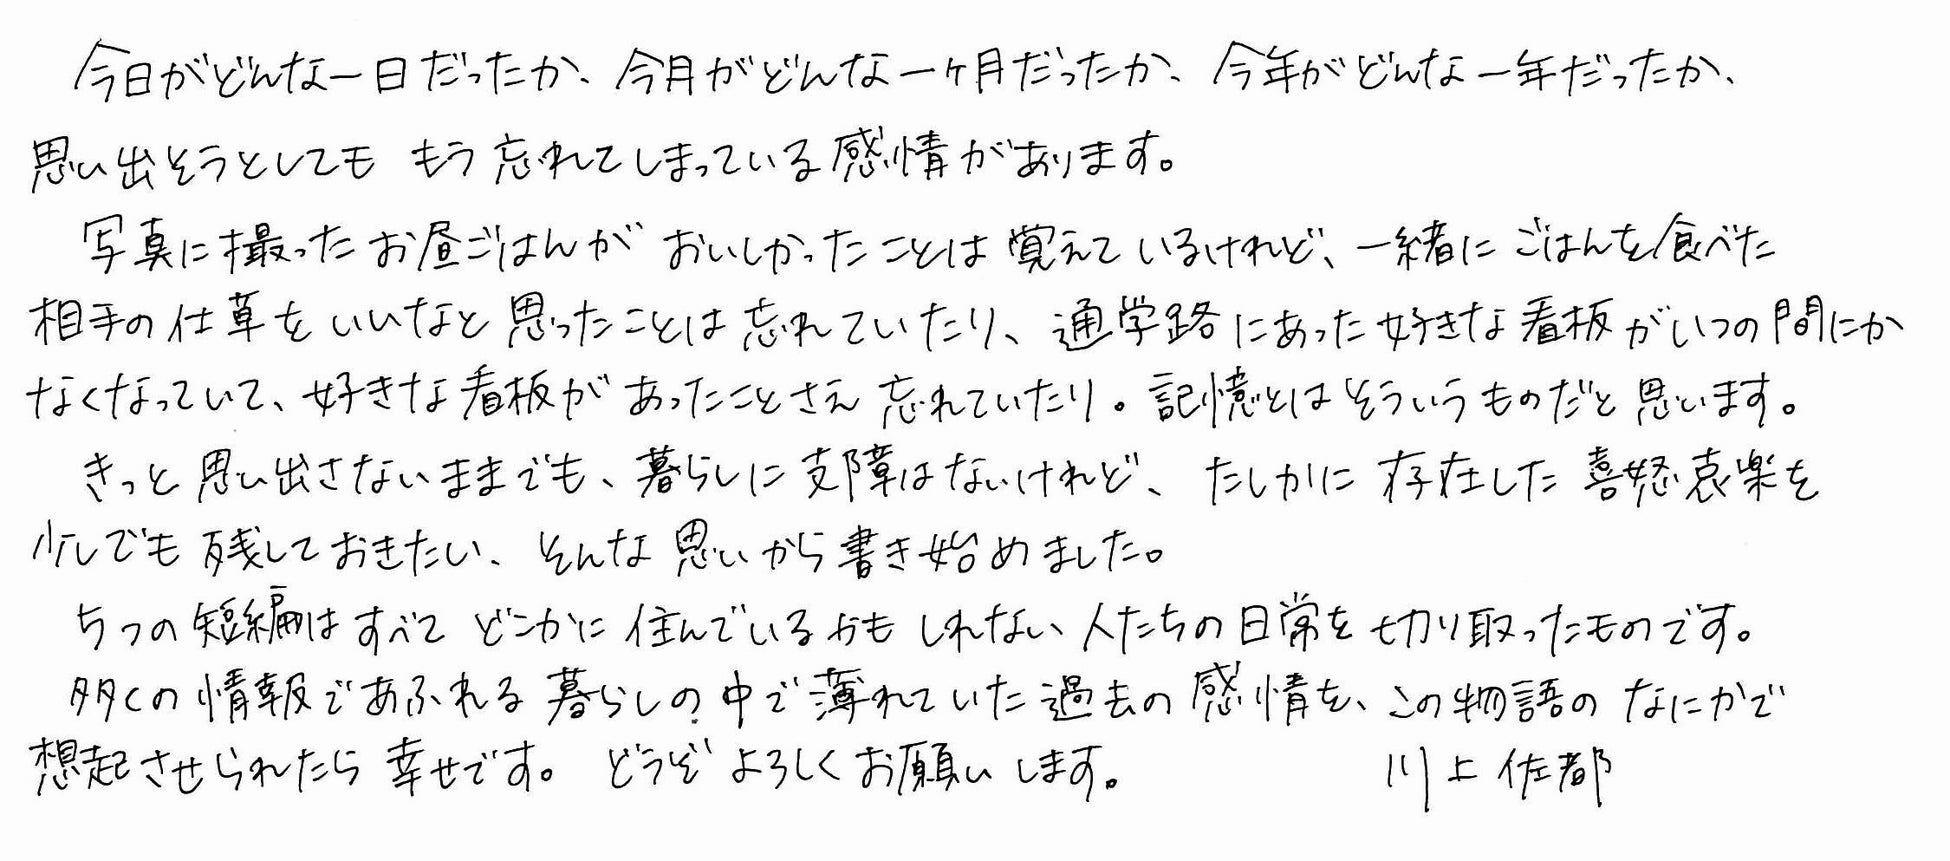 今日がどんな一日だったか、今月がどんな一ヶ月だったか、今年がどんな一年だったか、
思い出そうとしても もう忘れてしまっている感情があります。
写真に撮ったお昼ごはんがおいしかったことは覚えているけれど、一緒にごはんを食べた
相手の仕草をいいなと思ったことは忘れていたり、通学路にあった好きな看板がいつの間にか
なくなっていて、好きな看板があったことさえ忘れていたり。記憶とはそういうものだと思います。
きっと思い出さないままでも、暮らしに支障はないけれど、たしかに存在した喜怒哀楽を
少しでも残しておきたい、そんな思いから書き始めました。
5つの短編はすべてどこかに住んでいるかもしれない人たちの日常を切り取ったものです。
多くの情報であふれる暮らしの中で薄れていた過去の感情を、この物語のなにかで
想起させられたら幸せです。どうぞよろしくお願いします。 川上佐都